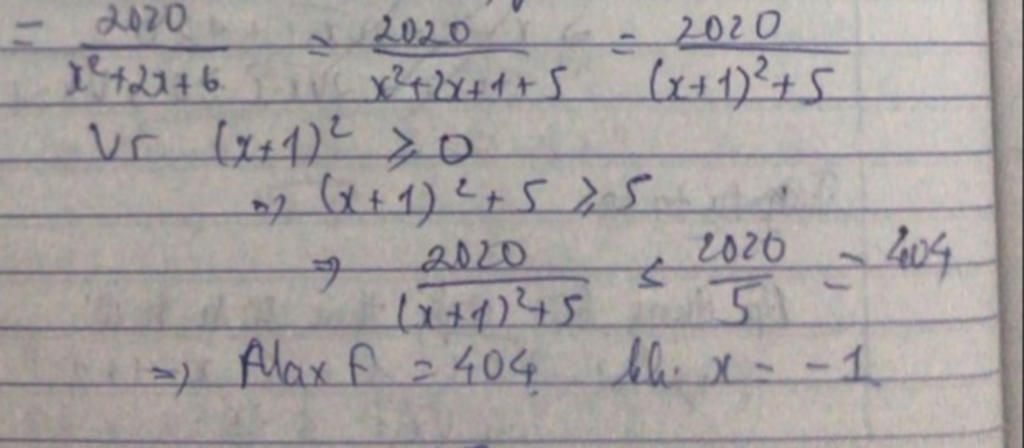 = 2020/(x²+2x+6) = 2020/(x²+2x+1+5) = 2020/((x+1)²+5)
Vì (x+1)² ⩾ 0
=> (x+1)²+5 ⩾ 5
=> 2020/((x+1)²+5) ≤ 2020/5 = 404
=> Max F = 404 kh. x = -1